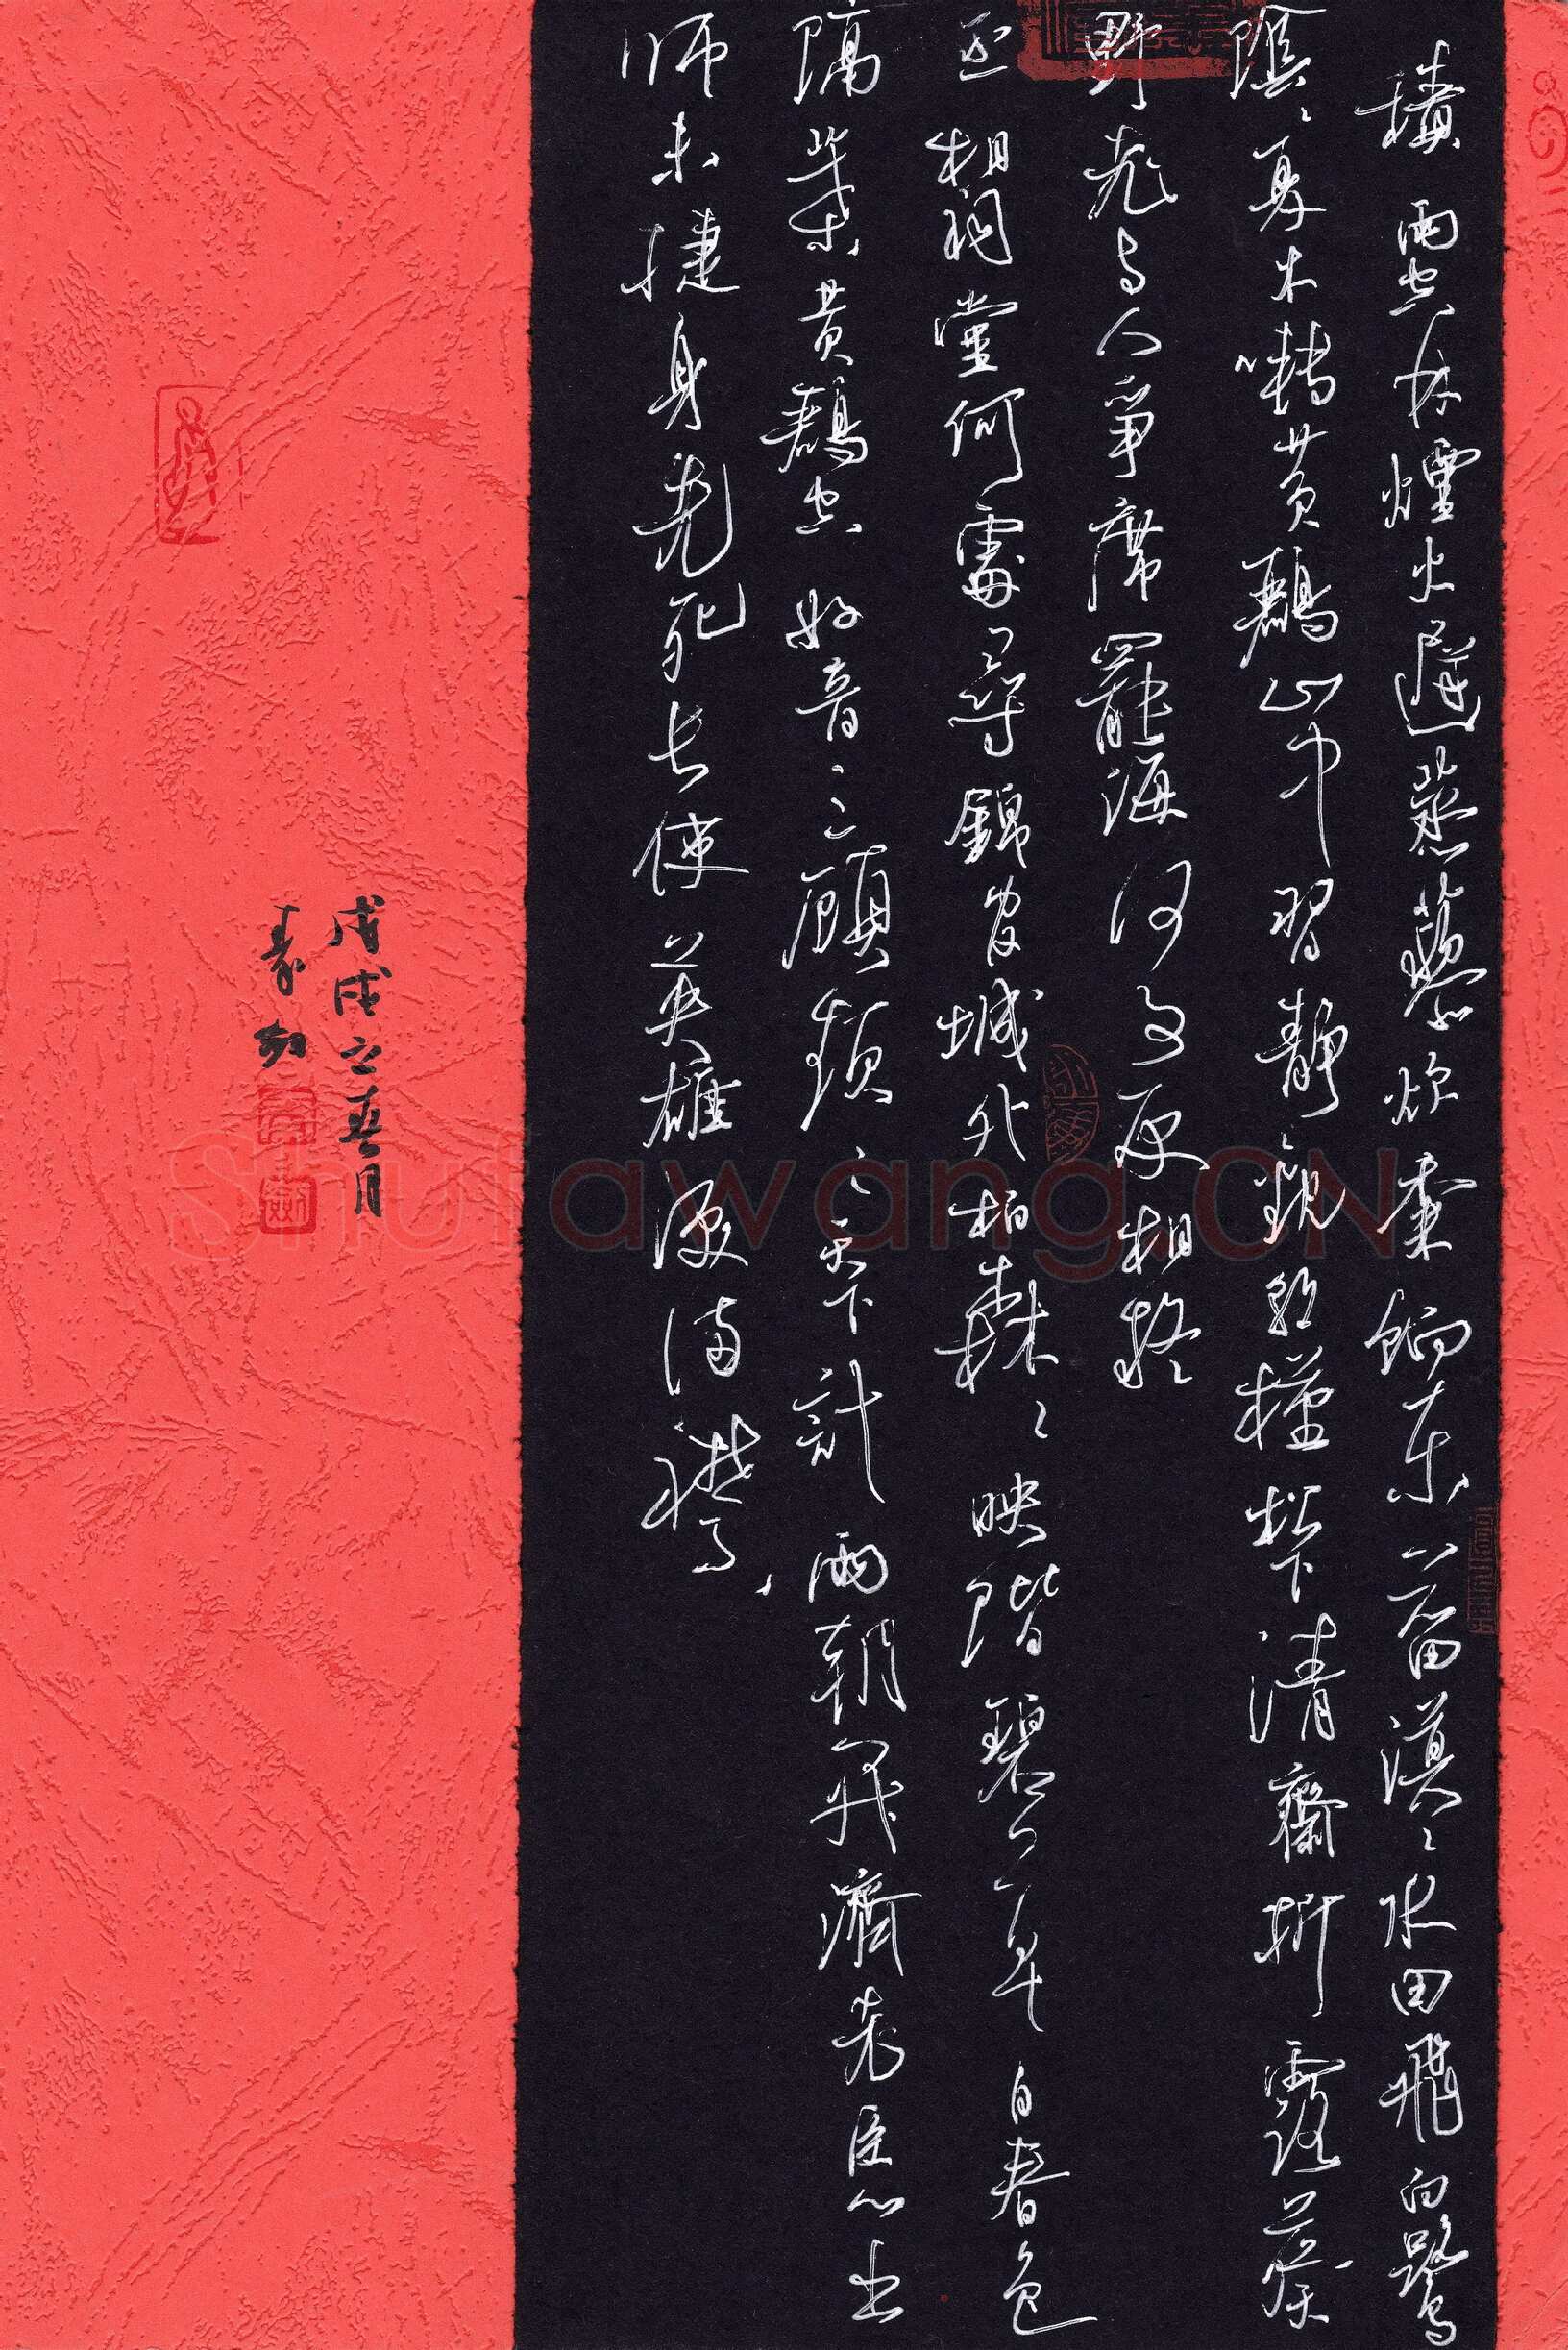 積雨空林煙火遲蒸藜炊黍餉東菑漠〻水田飛白鷺
陰〻夏木囀黃鸝山中習靜觀朝槿松下清齋折露葵
野老与人爭席罷海何事更相疑
丞相祠堂何處尋錦官城外柏森〻映階碧草自春色
隔葉黃鸝空好音三顧頻〻天下計兩朝開濟老臣心出
師未捷身先死長使英雄淚滿襟
戊戌之春月
袁
shufawang.CN